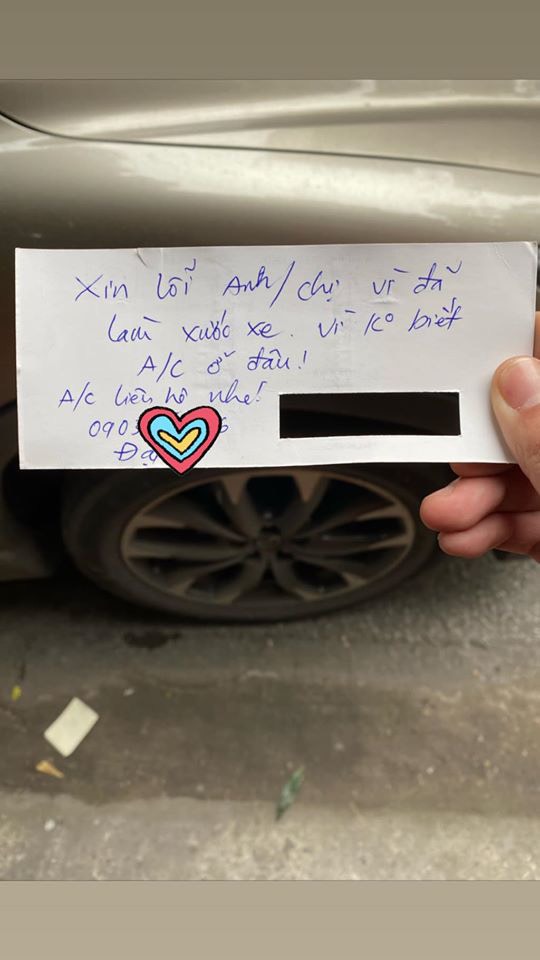 Xin lỗi Anh/chị vì đã
làm xước xe. vì ko biết
A/C ở đâu!
A/C liên hệ nhé!
090
Đạ